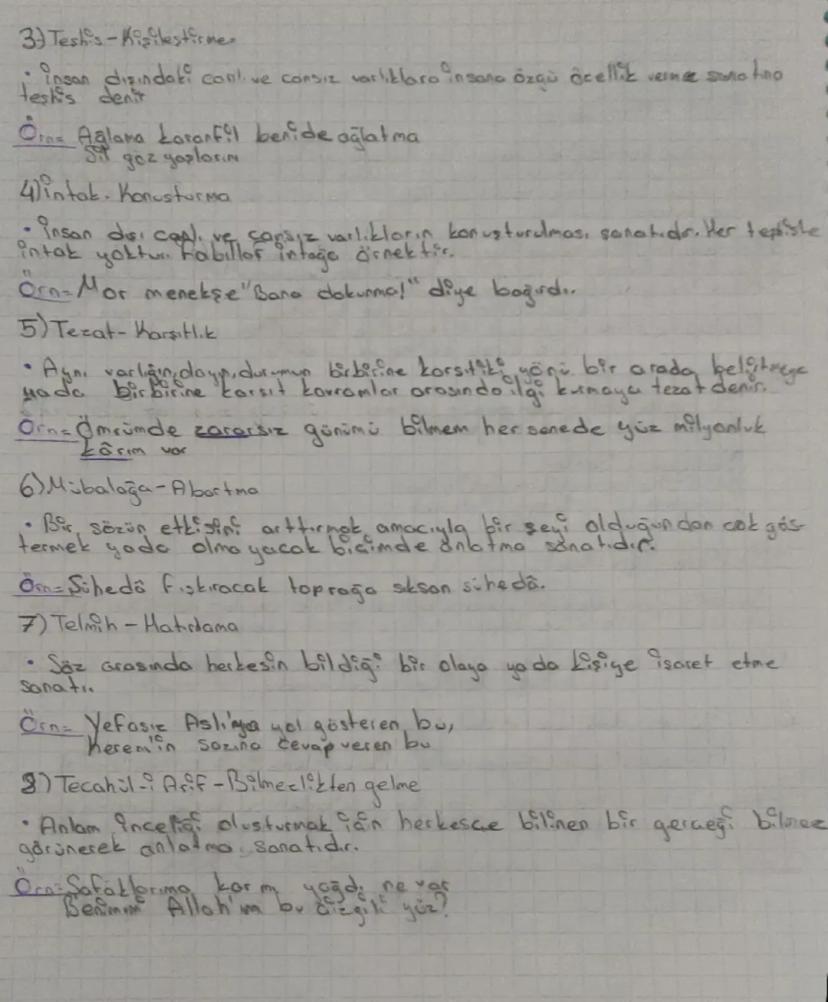 3) Teshis - Kişileştirme
• İnsan dışındaki canlı ve cansız varlıklara insana özgü özellik verme sanatına
teshis denir
Örn= Ağlama karanfil beni de ağlatma
Sil göz yaşlarını
4) İntak - Konuşturma
• İnsan dışı canlı ve cansız varlıkların konuşturulması sanatıdır. Her teshiste
intak yoktur. Fabıllar intağa örnektir.
Örn= Mor menekşe "Bana dokunma!" diye bağırdı.
5) Tezat - Karşıtlık
• Aynı varlığın, olayın, durumun birbirine karşıt iki yönü bir arada belirtmeye
yada birbirine karşıt kavramlar arasında ilgi kurmaya tezat denir.
Örn= Ömrümde zararsız günümü bilmem her senede yüz milyonluk
kârım var
6) Mübalağa - Abartma
• Bir sözün etkisini arttırmak amacıyla bir şeyi olduğundan çok gös-
termek yada olmayacak biçimde anlatma sanatıdır.
Örn= Şühedâ fışkıracak toprağa sıksan şühedâ.
7) Telmih - Hatırlama
• Söz arasında herkesin bildiği bir olaya yada kişiye işaret etme
sanatı.
Örn= Vefasız Aslı'ya yol gösteren bu,
Kerem'in sazına cevap veren bu
8) Tecahül-i Arif - Bilmezlikten gelme
• Anlam inceliği oluşturmak için herkesçe bilinen bir gerçeği bilmez
görünerek anlatma sanatıdır.
Örn= Şafaklarıma kar mı yağdı ne var
Benim mi Allah'ım bu çizgili yüz?